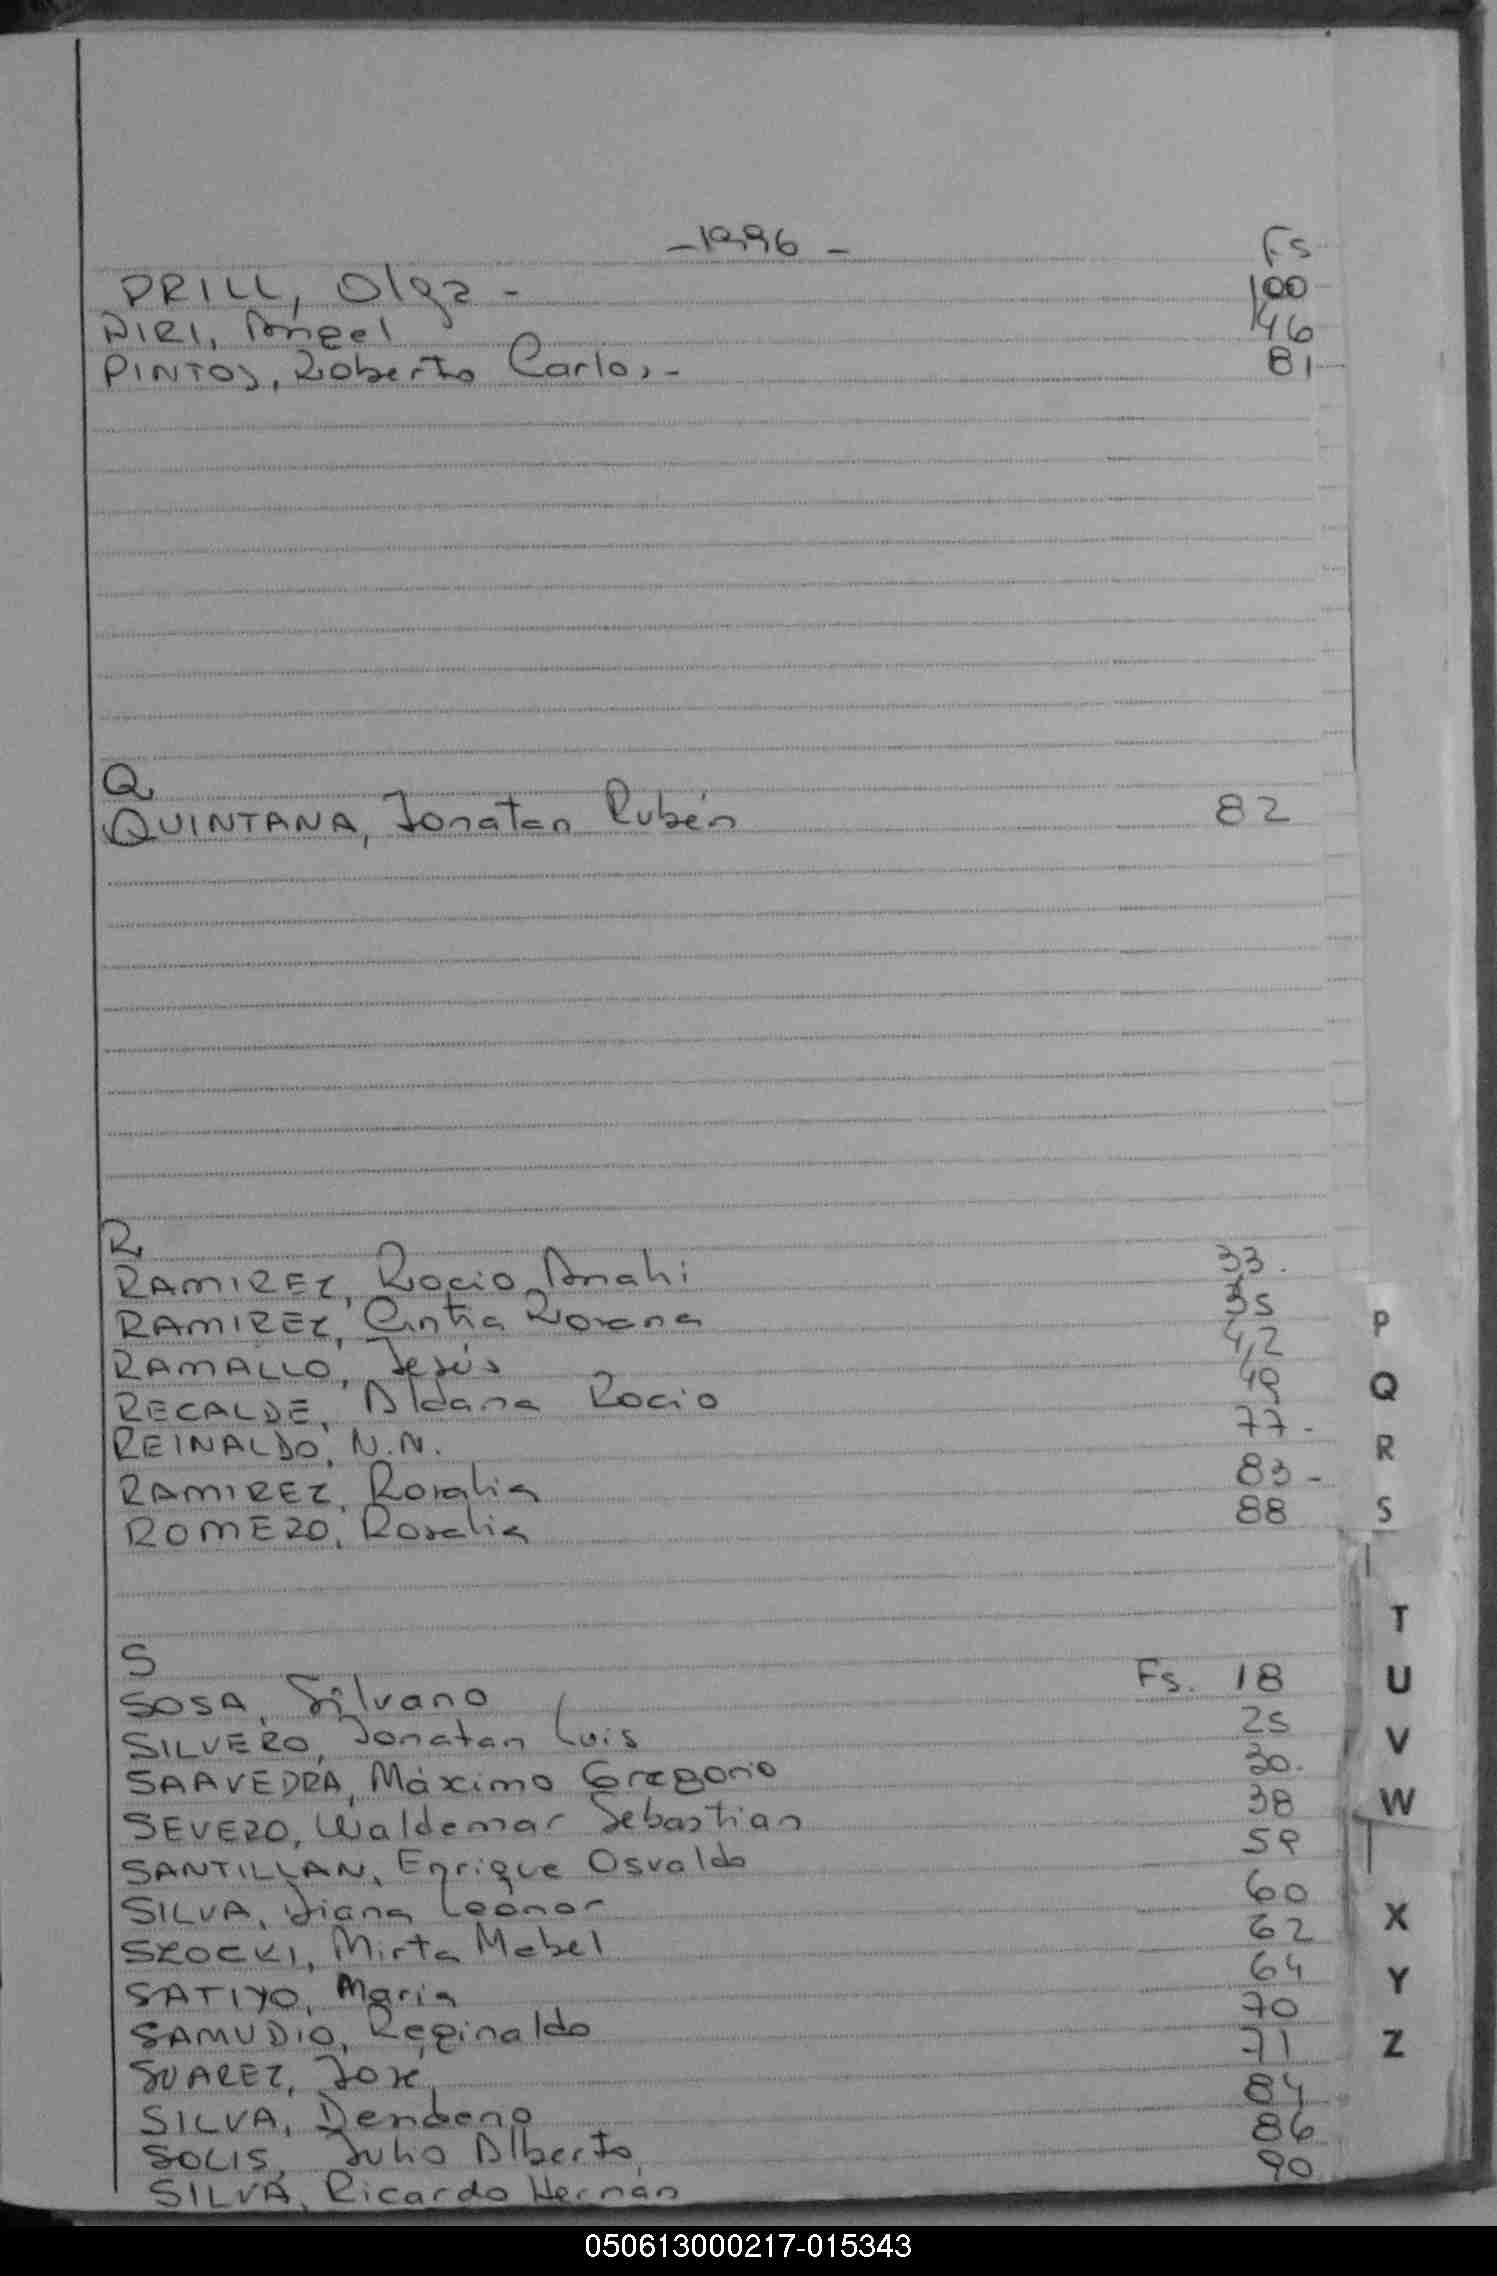 -1996-
Fs
PRILL, Olga - 100
PIRI, Angel 146
PINTOS, Roberto Carlos.- 81
Q
QUINTANA, Jonatan Rubén 82
R
RAMIREZ, Rocio Anahi 33.
RAMIREZ, Cintia Rosana 35
RAMALLO, Jesús 42
RECALDE, Aldana Rocio 49
REINALDO, N.N. 77.
RAMIREZ, Rosalia 83-
ROMERO, Rosalia 88
S
SOSA, Silvano Fs. 18
SILVERO, Jonatan Luis 25
SAAVEDRA, Máximo Gregorio 30.
SEVERO, Waldemar Sebastian 38
SANTILLAN, Enrique Osvaldo 59
SILVA, Diana Leonor 60
SKOCKI, Mirta Mabel 62
SATIYO, Maria 64
SAMUDIO, Reginaldo 70
SUAREZ, José 71
SILVA, 84
SOLIS, Julio Alberto 86
SILVA, Ricardo Hernán 90
P
Q
R
S
T
U
V
W
X
Y
Z
050613000217-015343